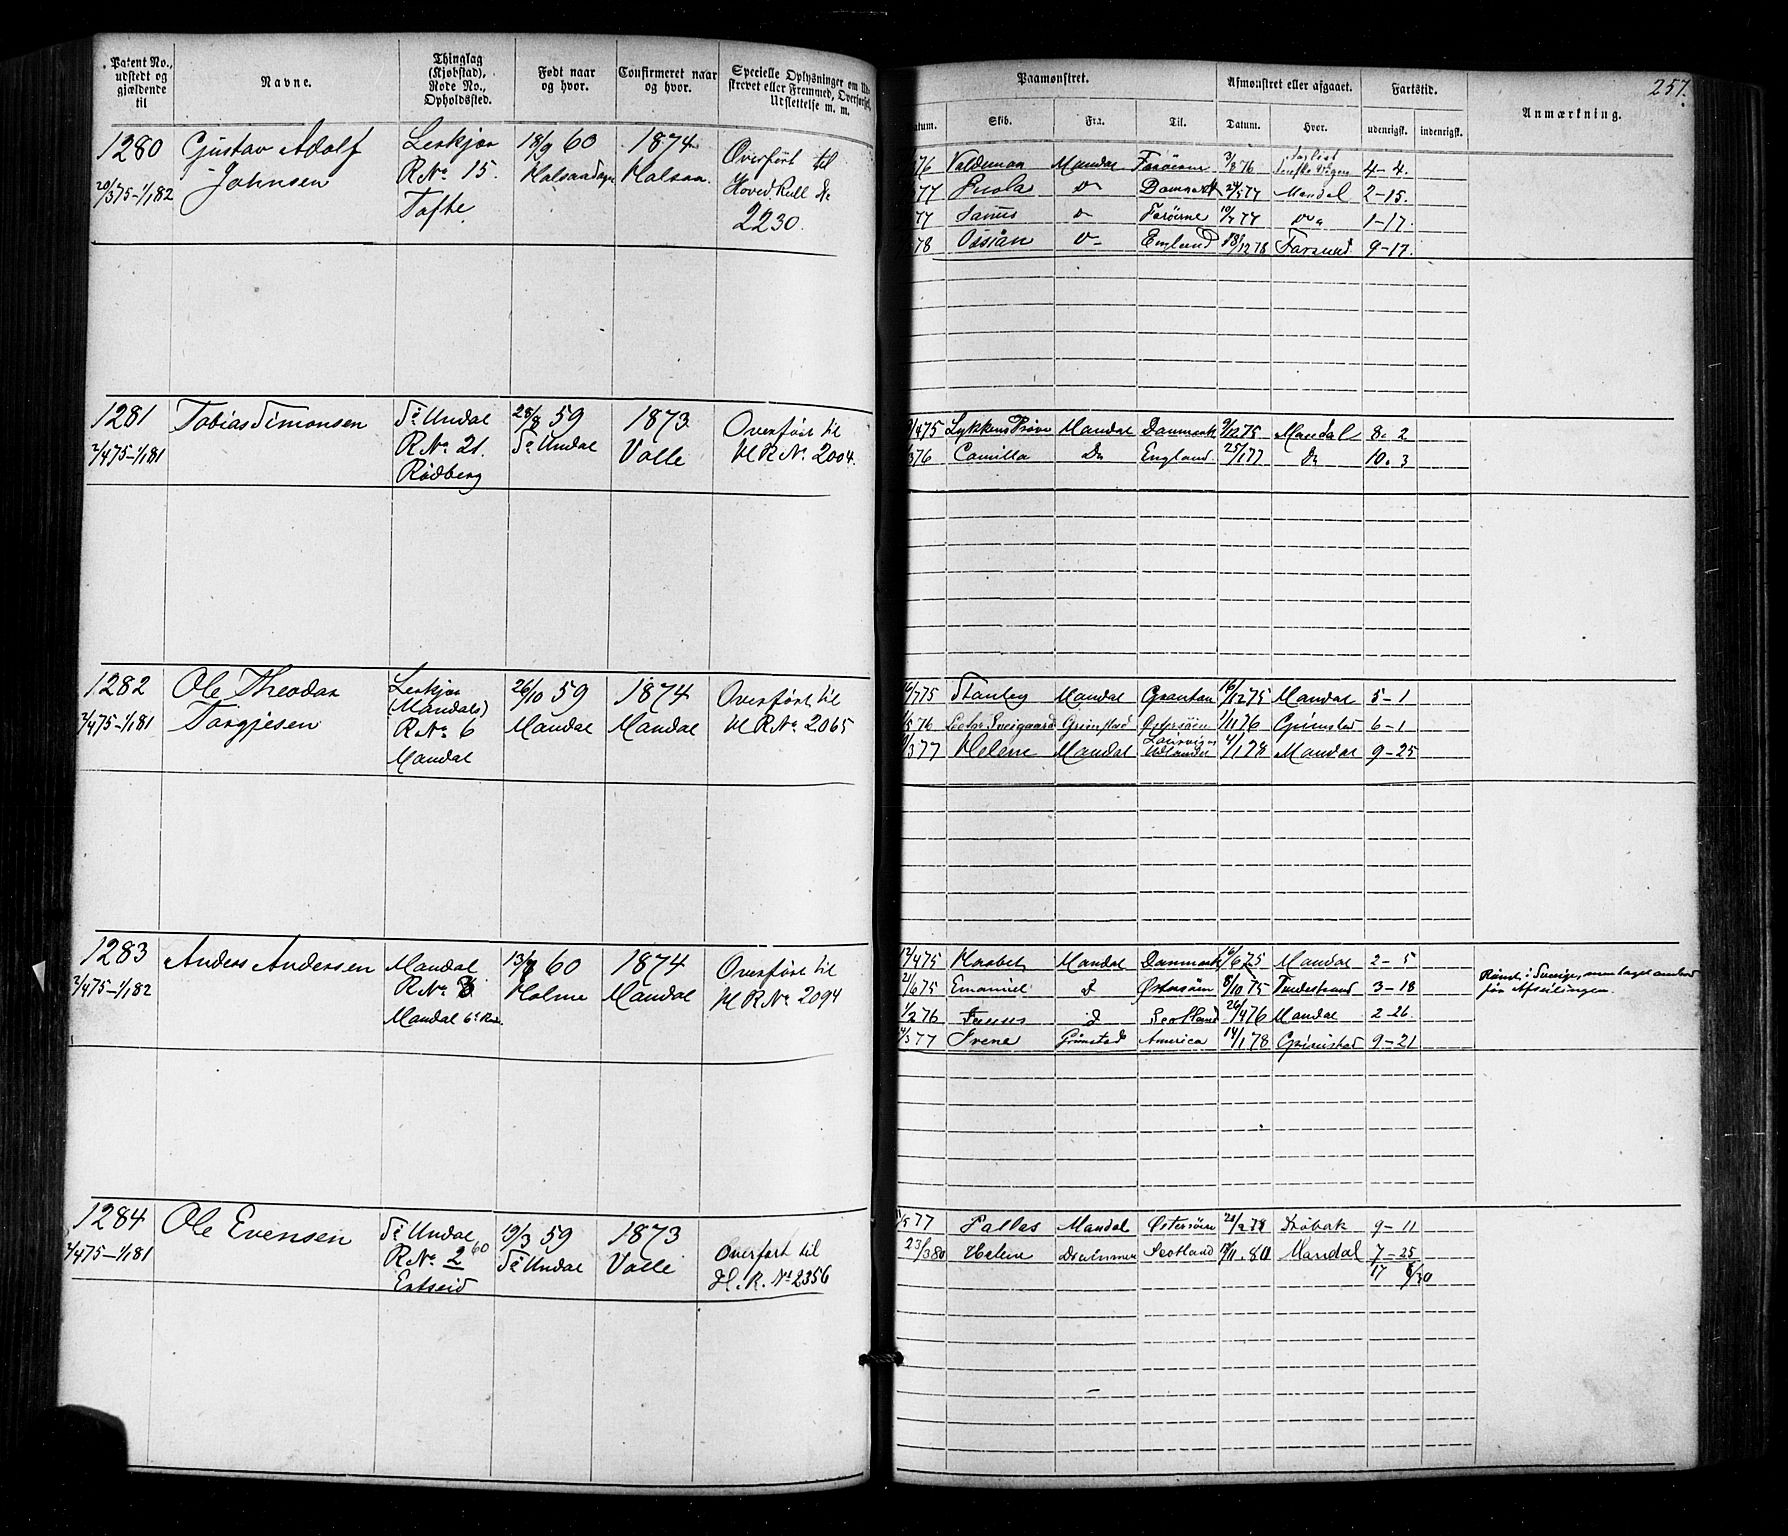 257.
Patent No., udstedt og gjældende til
Navne.
Thinglag (Kjøbstad), Rode No., Opholdssted.
Født naar og hvor.
Confirmeret naar og hvor.
Specielle Oplysninger om Ud-
skrevet eller Fremmed, Overførsel,
Udslettelse m. m.
Paamønstret.
Afmønstret eller afgaaet.
Fartstid.
Anmærkning.
Skib.
Fra.
Til.
Datum.
Hvor.
udenrigsk.
indenrigsk.
1280 Gustav Adolf 18/9 60 1874 Overført til
20/3 75-1/1 82 Johnsen R No 15. Halsaa Hoved Rull No
Tofte 2230.
76 Valdemar Mandal Færøerne 3/8 76 4-4.
77 Mandal 2-15.
77 Færøerne 10/7 77 1-17.
78 Ossian England 18/12 78 Farsund 9-17.
1281 Tobias Simonsen Sr Undal 28/8 59 1873 Overført til
2/4 75-1/1 81 R No 21. Sr Undal Valle H R No 2004.
Rødberg
Lykkens Prøve Mandal Danmark 9/12 75 Mandal 8. 2
Camilla Do England 25/1 77 Do 10. 3
1282 Ole Theodor 26/10 59 1874 Overført til
2/4 75-1/1 81 Torgjesen (Mandals) R No 6 Mandal Mandal H R No 2065
Mandal
Stanley Mandal Grantan 16/12 75 Mandal 5-1
Grimstad Østersøen 1/11 76 Grimstad 6-1
Helene Mandal 4/1 78 Mandal 9-25
1283 Anders Andersen Mandal 60 1874 Overført til
2/4 75-1/1 82 R No 8 Holme Mandal H R No 2094
Mandal
12/4 75 Mandal Danmark 16/6 75 Mandal 2-5
21/6 75 Emanuel D Østersøen 8/10 75 3-18
1/2 76 d Scotland 26/4 76 Mandal 2-26.
77 Irene Grimstad America 14/1 78 Grimstad 9-21
Rømt i Sverige, men taget ombord
før Afseilingen.
1284 Ole Evensen Sr Undal 19/3 59 1873 Overført til
2/4 75-1/1 81 R No 2 60 Sr Undal Valle H. R. No 2356
77 Pallas Mandal Østersøen Drøbak 9-11
23/3 80 Helene Drammen Scotland 80 Mandal 7-25
17 6/30